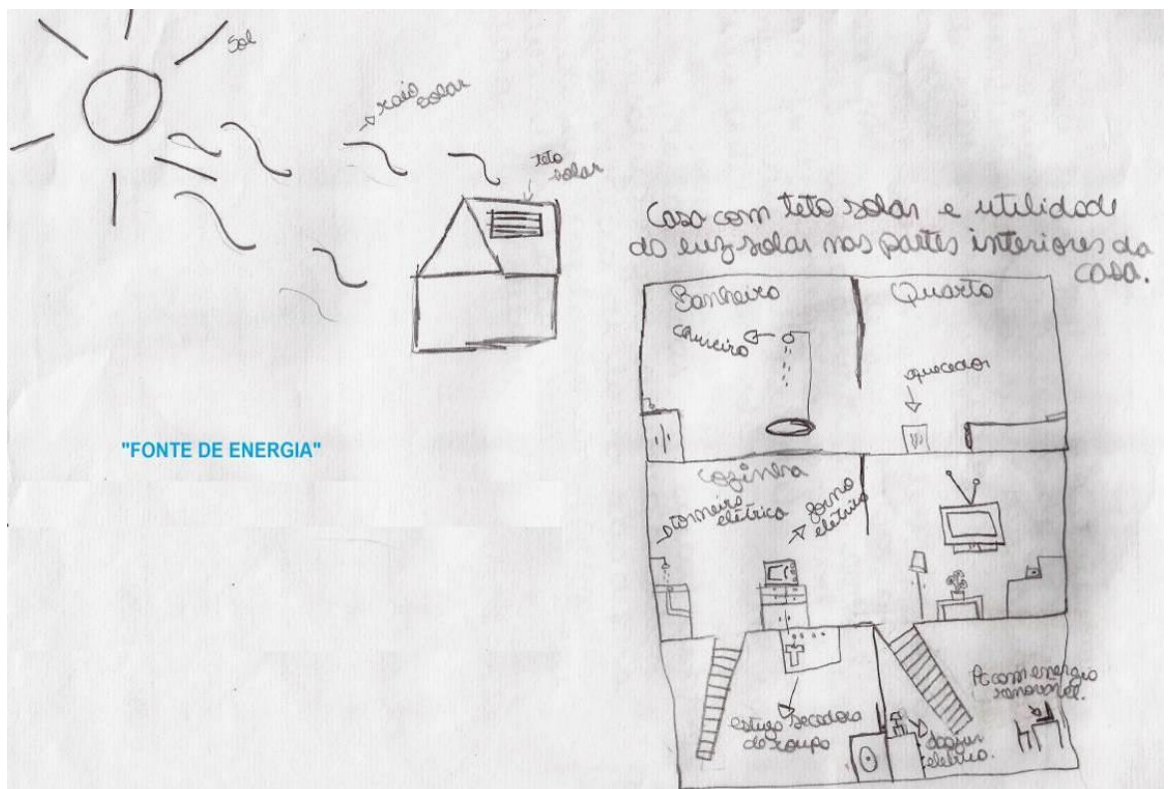 Sol
raio
solar
teto
solar
Casa com teto solar e utilidade
da luz solar nas partes interiores da
casa.
Banheiro
Quarto
chuveiro
aquecedor
"FONTE DE ENERGIA"
Cozinha
torneira
elétrica
forno
elétrico
estufa secadora
de roupa
abajur
elétrico.
Pc com energia
renovável.